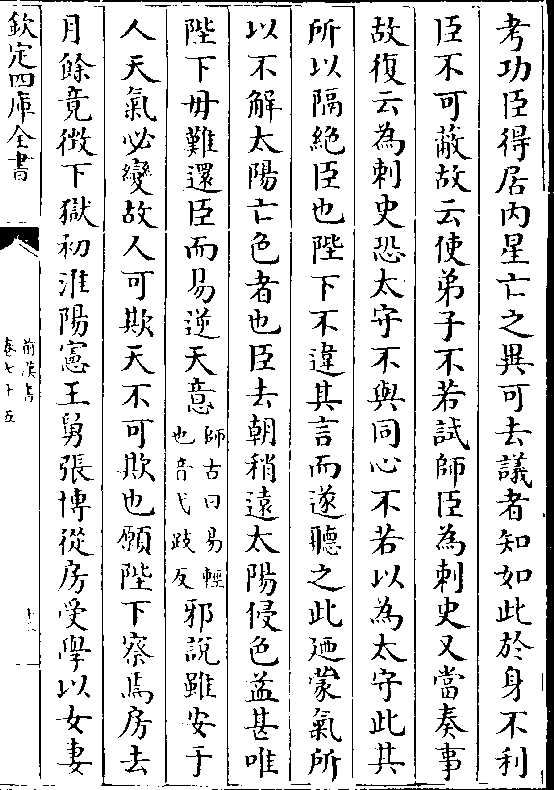 考功臣得居内星亡之異可去議者知如此於身不利
臣不可蔽故云使弟子不若試師臣為刺史又當奏事
故復云為刺史恐太守不與同心不若以為太守此其
所以隔絶臣也陛下不違其言而遂聽之此廼蒙氣所
以不解太陽亡色者也臣去朝稍遠太陽侵色益甚唯
陛下毋難還臣而易逆天意師古曰易輕也音弋豉反邪說雖安于
人天氣必變故人可欺天不可欺也願陛下察焉房去
月餘竟徴下獄初淮陽憲王舅張博從房受學以女妻
欽定四庫全書
前漢書
卷七十五